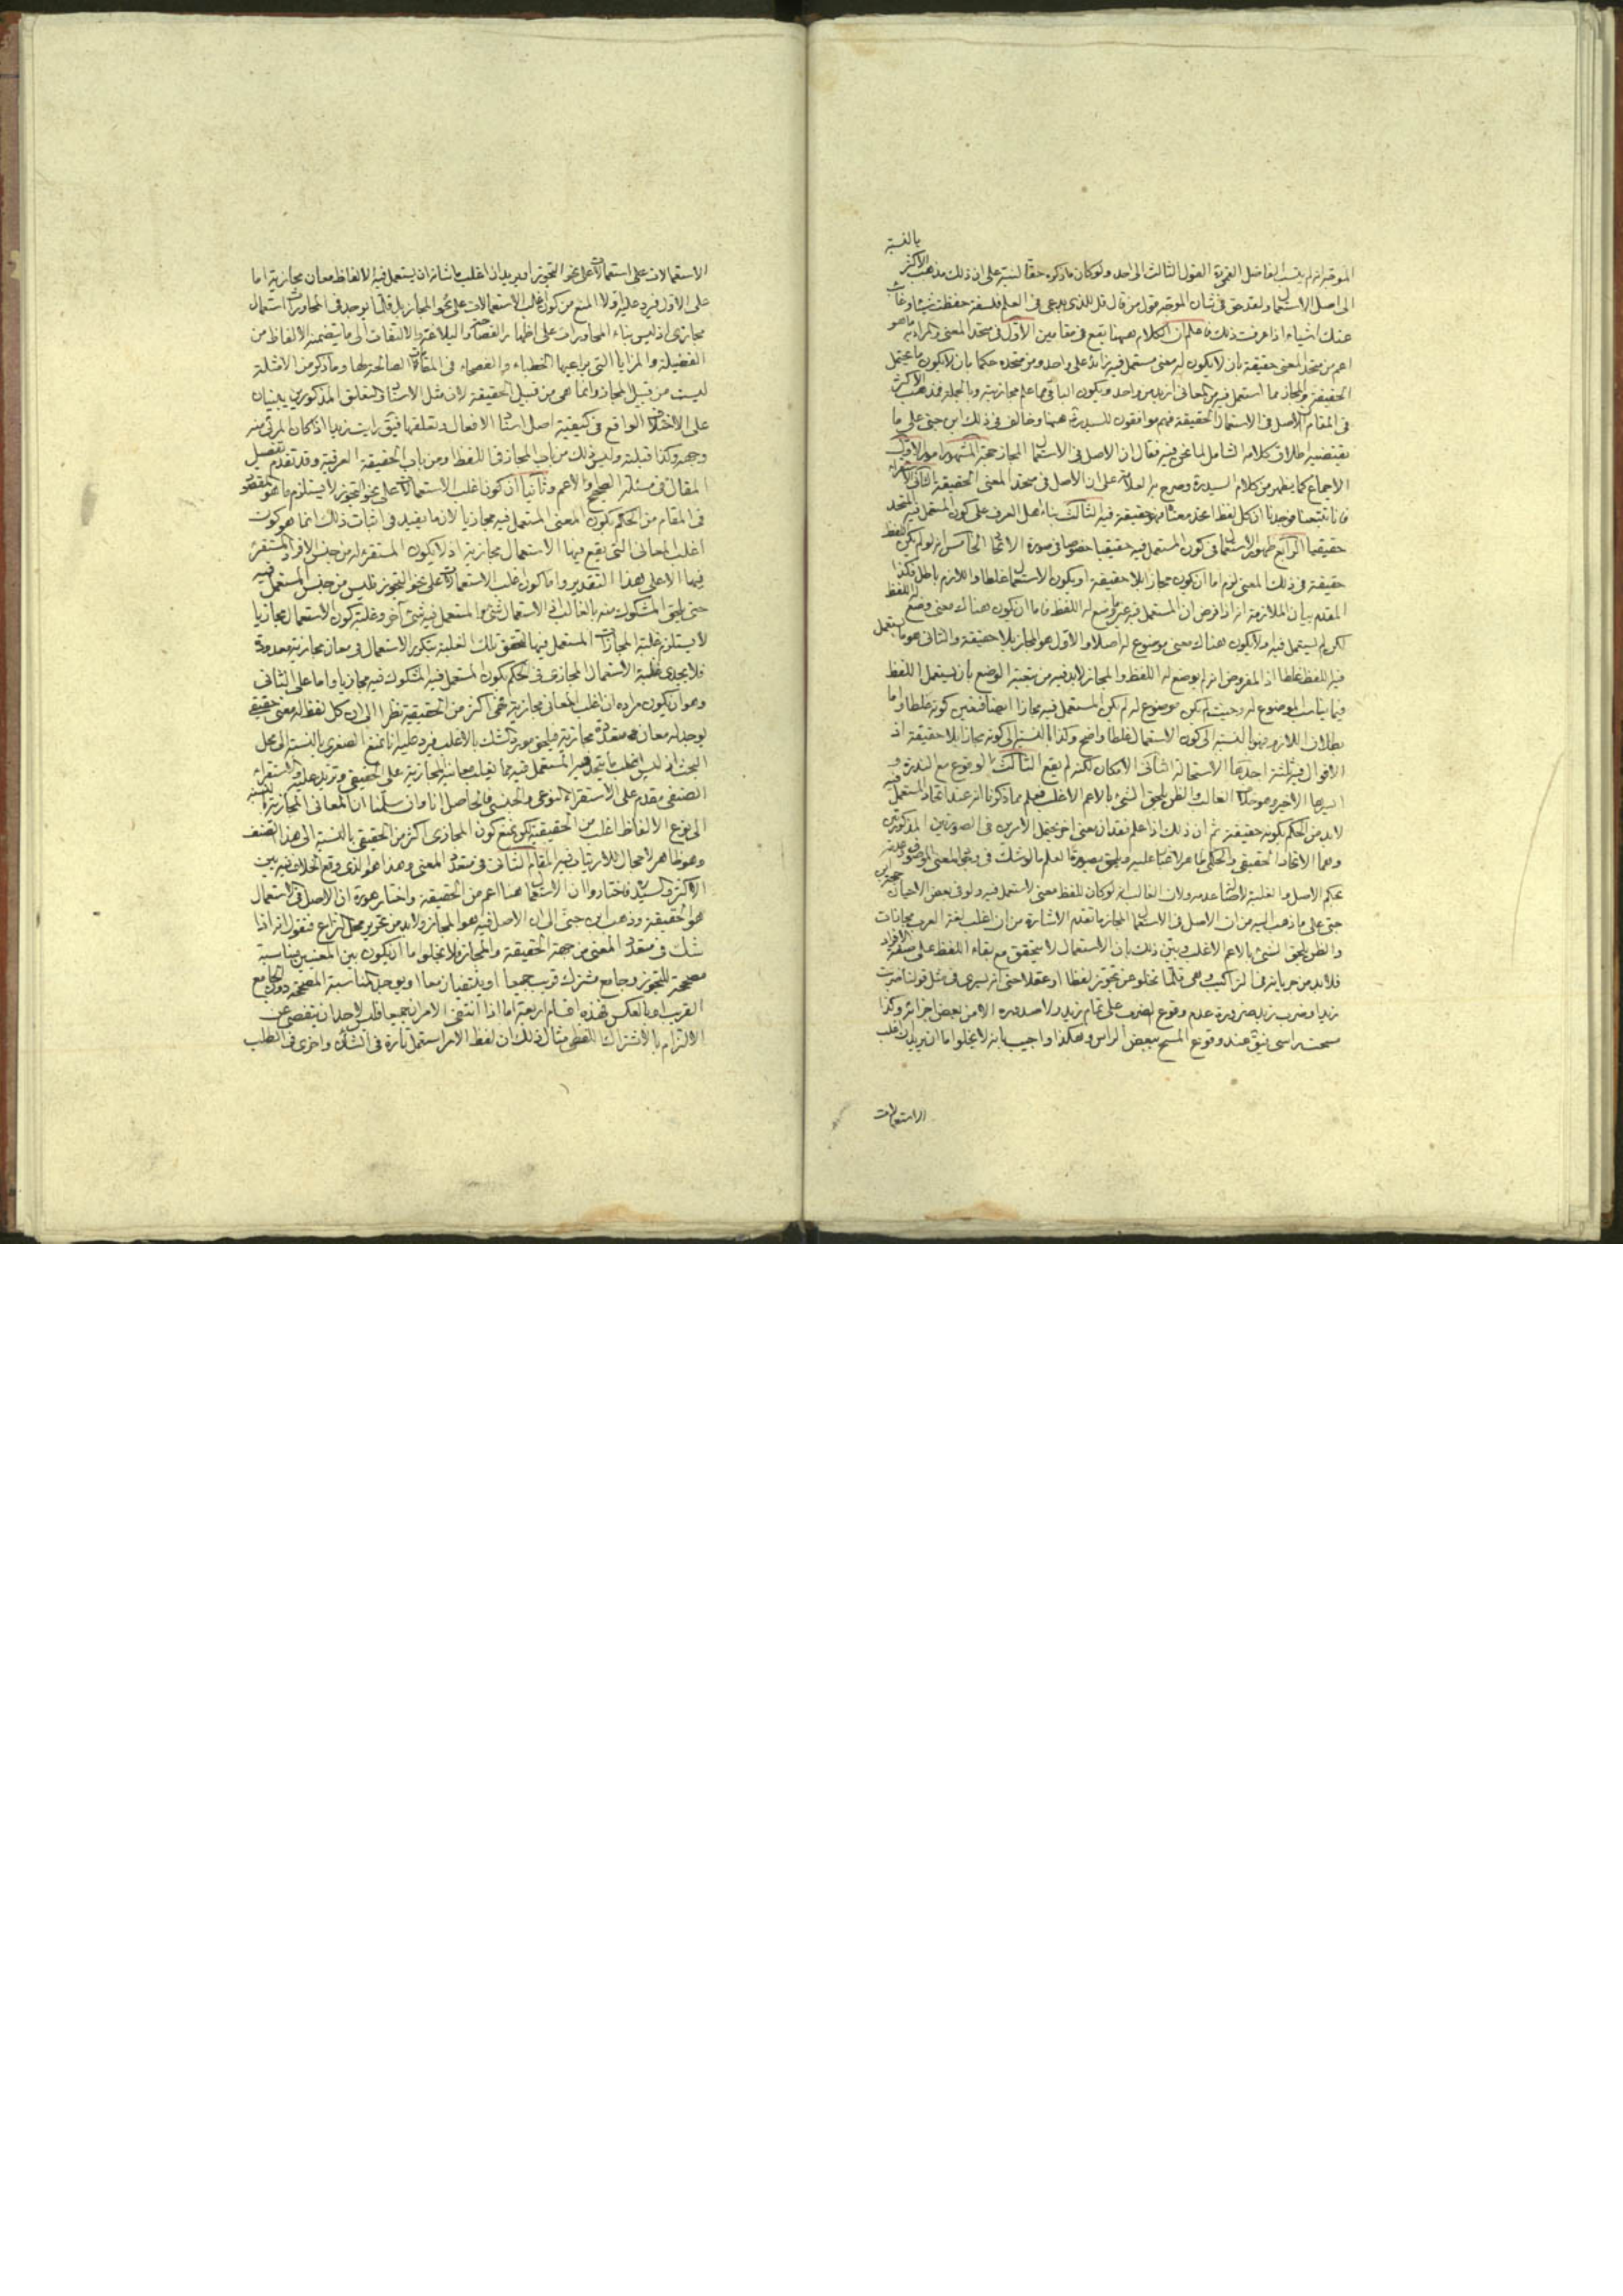 بالنسبة
الموجه انه لم ينسب الفاضل القول الثالث الى احد ولو كان ما ذكره حقا لنبه على ان ذلك مذهب الاكثر
الى اصل الاستعمال ولقد حق في شان الموجه قول من قال قل للذي يدعى في العلم فلسفة حفظت شيئا وغابت
عنك اشياء اذا عرفت ذلك فاعلم ان الكلام ههنا يقع في مقامين الاول في متحد المعنى والمراد به ما هو
اعم من متحد المعنى حقيقة بان لا يكون له معنى مستعمل فيه زائد على واحد ومن متحده حكما بان لا يكون ما يحتمل
الحقيقة والمجاز مما استعمل فيه من المعاني ازيد من واحد ويكون الباقي مما علم مجازيته وبالجملة فمذهب الاكثر
في المقام الاصل في الاستعمال الحقيقة فهم موافقون للسيد ره هيهنا وخالف في ذلك ابن جنى على ما
يقتضيه اطلاق كلامه الشامل لما نحن فيه فقال ان الاصل في الاستعمال المجاز حجة المشهور امور الاول
الاجماع كما يظهر من كلام السيد ره وصرح به العلامة على ان الاصل في متحد المعنى الحقيقة الثاني الاستقراء
فانا تتبعنا فوجدنا ان كل لفظ اتحد معناه فهو حقيقة فيه الثالث بناء اهل العرف على كون المستعمل فيه المتحد
حقيقيا الرابع ظهور الاستعمال في كون المستعمل فيه حقيقيا خصوصا في صورة الاتحاد الخامس انه لو لم يكن اللفظ
حقيقة في ذلك المعنى لزم اما ان يكون مجازا بلا حقيقة او يكون الاستعمال غلطا واللازم باطل فكذا
المقدم بيان الملازمة انه اذا فرض ان المستعمل فيه غير ما وضع له اللفظ فاما ان يكون هناك معنى وضع له اللفظ
لكن لم يستعمل فيه او لا يكون هناك معنى موضوع له اصلا والاول هو المجاز بلا حقيقة والثاني هو ما يستعمل
فيه اللفظ غلطا اذ المفروض انه لم يوضع له اللفظ والمجاز لا بد فيه من تبعية الوضع بان يستعمل اللفظ
فيما يناسب الموضوع له وحيث لم يكن موضوع له لم يكن المستعمل فيه مجازا ايضا فتعين كونه غلطا واما
بطلان اللازم فهو بالنسبة الى كون الاستعمال غلطا واضح وكذا بالنسبة الى كونه مجازا بلا حقيقة اذ
الاقوال فيه ثلثة احدها الاستحالة الثاني الامكان لكنه لم يقع الثالث الوقوع مع الندرة و
ايسرها الاخير وهو خلاف الغالب والظن يلحق الشيء بالاعم الاغلب فعلم مما ذكرنا انه عند اتحاد المستعمل فيه
لا بد من الحكم بكونه حقيقة ثم ان ذلك اذا علم فقدان معنى اخر يحتمل الامرين في الصورتين المذكورتين
وهما الاتحاد الحقيقي والحكمي ظاهر لا غبار عليه ويلحق بصورة العلم ما لو شك في وجود المعنى الموصوف وعدمه
بحكم الاصل والغلبة لاصالة عدمه ولان الغالب انه لو كان للفظ معنى لاستعمل فيه ولو في بعض الاحيان حجة ابن
جنى على ما ذهب اليه من ان الاصل في الاستعمال المجاز ما تقدم الاشارة من ان اغلب لغة العرب مجازات
والظن يلحق الشيء بالاعم الاغلب وبين ذلك بان الاستعمال لا يتحقق مع بقاء اللفظ على صفة الافراد
فلا بد من جريانه في التراكيب وهي قلما تخلو عن تجوز لفظا او عقلا حتى انه يسرى في مثل قولنا ضربت
زيدا وضرب زيد ضرورة عدم وقوع الضرب على تمام زيد ولا صدوره الا من بعض اجزائه وكذا
مسحت براسي فيق عند وقوع المسح ببعض الراس وهكذا واجيب بانه لا يخلوا اما ان يريد ان اغلب
الاستعمالات
الاستعمالات على استعمالات على نحو التجوز او يريد ان اغلب ما شانه ان يستعمل فيه الالفاظ معان مجازية اما
على الاول فيرد عليه اولا المنع من كون اغلب الاستعمالات على نحو المجاز بل قلما يوجد في المحاورات استعمال
مجازي اذ ليس بناء المحاورات على اظهار الفصاحة والبلاغة والالتفات الى ما يتضمنه الالفاظ من
الفضيلة والمزايا التي يراعيها الخطباء والفصحاء في المقامات الصالحة لها وما ذكر من الامثلة
ليست من قبيل المجاز وانما هي من قبيل الحقيقة لان مثل الاسناد والتعلق المذكورين يبنيان
على الاختلاف الواقع في كيفية اصل اسناد الافعال وتعلقها فيق رايت زيدا اذا كان المرئي منه
وجهه وكذا قبلته وليس ذلك من باب المجاز في اللفظ او من باب الحقيقة العرفية وقد تقدم تفصيل
المقال في مسئلة الصحيح والاعم وثانيا ان كون اغلب الاستعمالات على نحو التجوز لا يستلزم ما هو المقصود
في المقام من الحكم بكون المعنى المستعمل فيه مجازيا لان ما يفيد في اثبات ذلك انما هو كون
اغلب المعاني التي يقع فيها الاستعمال مجازية اذ لا يكون المستقرء له من جنس الافراد المستقرء
فيها الا على هذا التقدير واما كون اغلب الاستعمالات على نحو التجوز فليس من جنس المستعمل فيه
حتى يلحق المشكوك منه بالغالب اذ الاستعمال شيء والمستعمل فيه شيء آخر وغلبة كون الاستعمال مجازيا
لا يستلزم غلبة المجازات المستعمل فيها لتحقق تلك الغلبة بتكرر الاستعمال في معان مجازية معدودة
فلا يجدى غلبة الاستعمال المجازي في الحكم بكون المستعمل فيه المشكوك فيه مجازيا واما على الثاني
وهو ان يكون مراده ان اغلب المعاني مجازية فهي اكثر من الحقيقية نظرا الى ان كل لفظ له معنى حقيقي
يوجد له معان متعددة مجازية فيلحق مورد الشك بالاغلب فيرد عليه انا نمنع الصغرى بالنسبة الى محل
البحث اذ ليس اغلب ما يتحد فيه المستعمل فيه مما يغلب معانيه المجازية على الحقيقي وتزيد عليه والاستقراء
الصنفي مقدم على الاستقراء النوعي والجنسي فالحاصل انا وان سلمنا ان المعاني المجازية بالنسبة
الى نوع الالفاظ اغلب من الحقيقية لكن نمنع كون المجازي اكثر من الحقيقي بالنسبة الى هذا الصنف
وهو ظاهر لا مجال للارتياب فيه المقام الثاني في متعدد المعنى وهذا هو الذي وقع الخلاف فيه بين
الاكثر والسيد فاختاروا ان الاستعمال هنا اعم من الحقيقة واختار هو ره ان الاصل في الاستعمال
هو الحقيقة وذهب ابن جنى الى ان الاصل فيه هو المجاز ولا بد من تحرير محل النزاع فنقول انه اذا
شك في متعدد المعنى من جهة الحقيقة والمجاز فلا يخلوا ما ان يكون بين المعنيين مناسبة
مصححة للتجوز وجامع مشترك قريب جميعا او ينتفيان معا او يوجد المناسبة المصححة دون الجامع
القريب او بالعكس فهذه اقسام اربعة اما اذا انتفى الامران جميعا فليس لاحد ان يتفصى عن
الالتزام بالاشتراك اللفظي مثال ذلك ان لفظ الامر استعمل تارة في الشان واخرى في الطلب